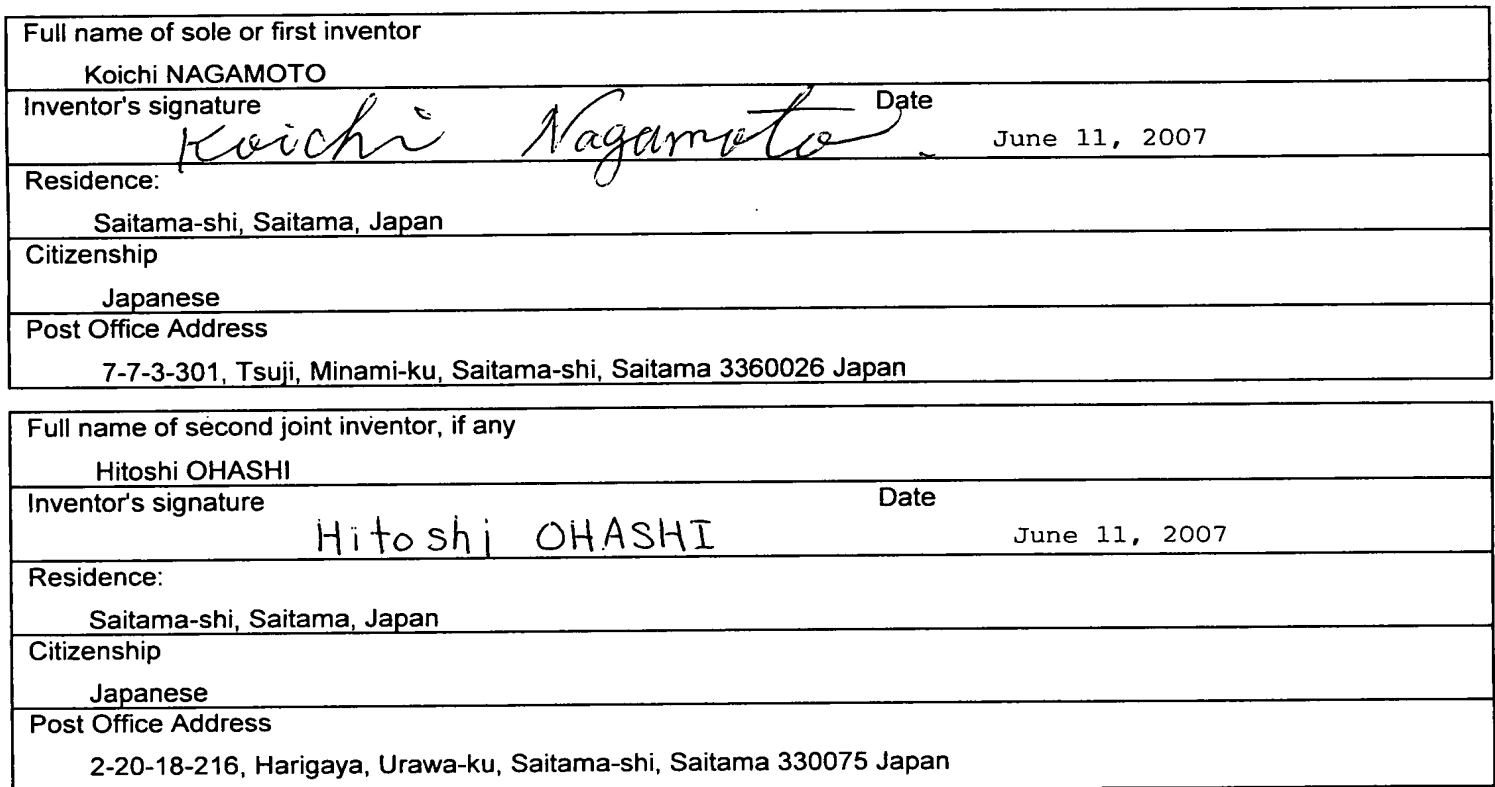 Full name of sole or first inventor
Koichi NAGAMOTO
Inventor's signature Koichi Nagamoto. Date June 11, 2007
Residence:
Saitama-shi, Saitama, Japan
Citizenship
Japanese
Post Office Address
7-7-3-301, Tsuji, Minami-ku, Saitama-shi, Saitama 3360026 Japan
Full name of second joint inventor, if any
Hitoshi OHASHI
Inventor's signature Hitoshi OHASHI Date June 11, 2007
Residence:
Saitama-shi, Saitama, Japan
Citizenship
Japanese
Post Office Address
2-20-18-216, Harigaya, Urawa-ku, Saitama-shi, Saitama 330075 Japan